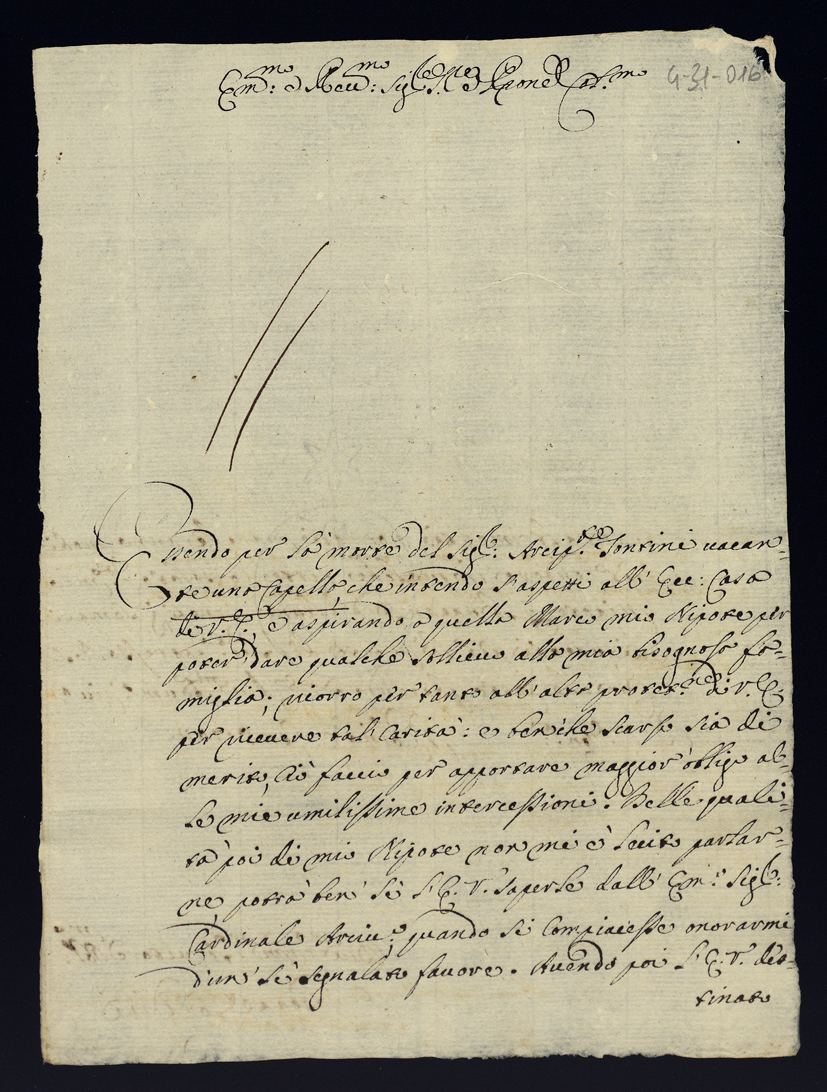 Em.mo e Reu.mo Sig.re Sig.re e Pṕone Col.mo
G-31-016
Essendo per la morte del Sig.r Arcip.te Fontini uacan=
te una Capella, che intendo s'aspetti all' Ecc: Casa
di V. E., e aspirando a quella Marco mio Nipote per
poter dare qualche sollieuo alla mia bisognosa fa=
miglia; ricorro per tanto all'alta protet.ne di V. E.
per riceuere tal carità: e benche scarso sia di
merito, ciò faccio per apportare maggior obligo al=
le mie umilissime intercessioni. Delle quali=
tà poi di mio Nipote non mi è lecito parlar=
ne potrà ben sì l'E. V. saperle dall' Em.o Sig.r
Cardinale Arciu.o, quando si compiacesse onorarmi
d'un sì segnalato fauore. Auendo poi l'E. V. des=
tinato